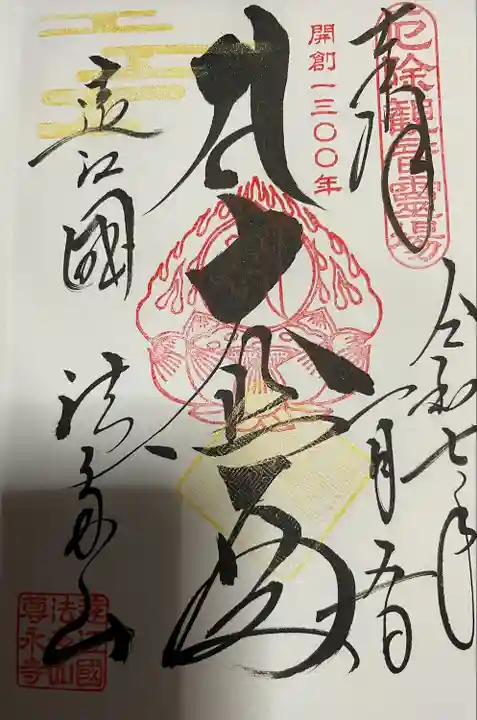 厄除觀音靈場
奉拝
令和七年
一月五日
開創一三〇〇年
遠江國
法多山
遠江國
法多山
尊永寺